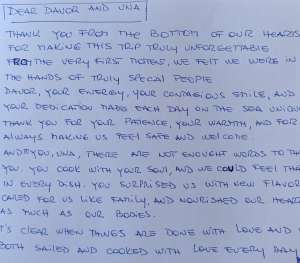 DEAR DAVOR AND UNA
THANK YOU FROM THE BOTTOM OF OUR HEARTS
FOR MAKING THIS TRIP TRULY UNFORGETTABLE
FROM THE VERY FIRST MOMENT, WE FELT WE WERE IN
THE HANDS OF TRULY SPECIAL PEOPLE
DAVOR, YOUR ENERGY, YOUR CONTAGIOUS SMILE, AND
YOUR DEDICATION MADE EACH DAY ON THE SEA UNIQUE
THANK YOU FOR YOUR PATIENCE, YOUR WARMTH, AND FOR
ALWAYS MAKING US FEEL SAFE AND WELCOME.
AND YOU, UNA, THERE ARE NOT ENOUGHT WORDS TO TH
YOU. YOU COOK WITH YOUR SOUL, AND WE COULD FEEL THA
IN EVERY DISH. YOU SURPRISED US WITH NEW FLAVOR
CARED FOR US LIKE FAMILY, AND NOURISHED OUR HEAR
AS MUCH AS OUR BODIES.
T'S CLEAR WHEN THINGS ARE DONE WITH LOVE AND
BOTH SAILED AND COOKED WITH LOVE EVERY DAY